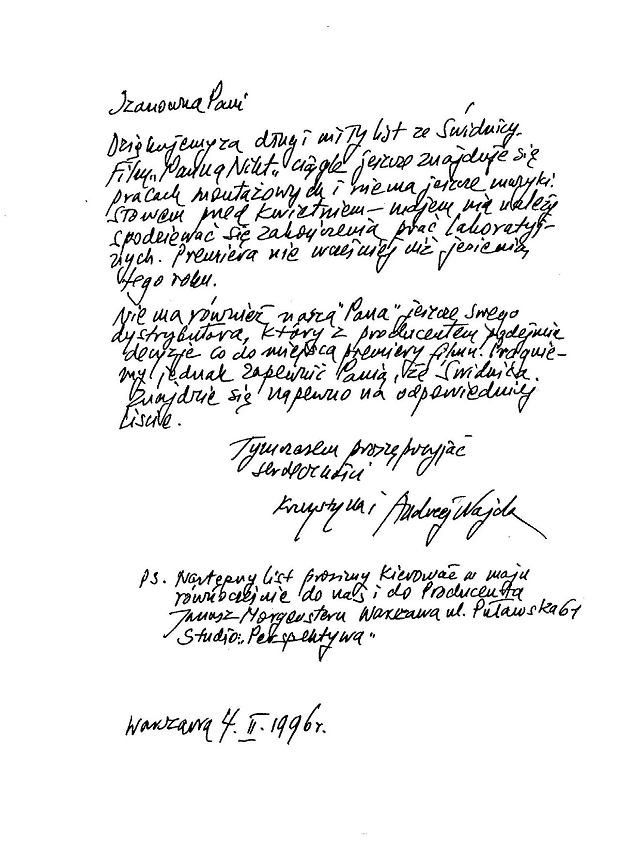 Szanowna Pani
Dziękujemy za długi miły list ze Świdnicy.
Film „Panna Nikt„ ciągle jeszcze znajduje się
pracach montażowych i nie ma jeszcze muzyki.
Słowem przed kwietniem – majem nie należy
spodziewać się zakończenia prac laboratyj-
nych. Premiera nie wcześniej niż jesienią
tego roku.
Nie ma również nasza "Pana" jeszcze swego
dystrybutora, który z producentem podejmie
decyzje co do miejsca premiery filmu. Pragnie-
my jednak zapewnić Panią, że Świdnica.
Znajdzie się napewno na odpowiedniej
liście.
Tymczasem proszę przyjąć
serdeczności
Krystyna i Andrzej Wajda
Ps. Następny list prosimy kierować w maju
równocześnie do nas i do Producenta
Janusz Morgenstern Warszawa ul. Puławska 61
Studio: „Perspektywa"
Warszawa 4. II. 1996r.